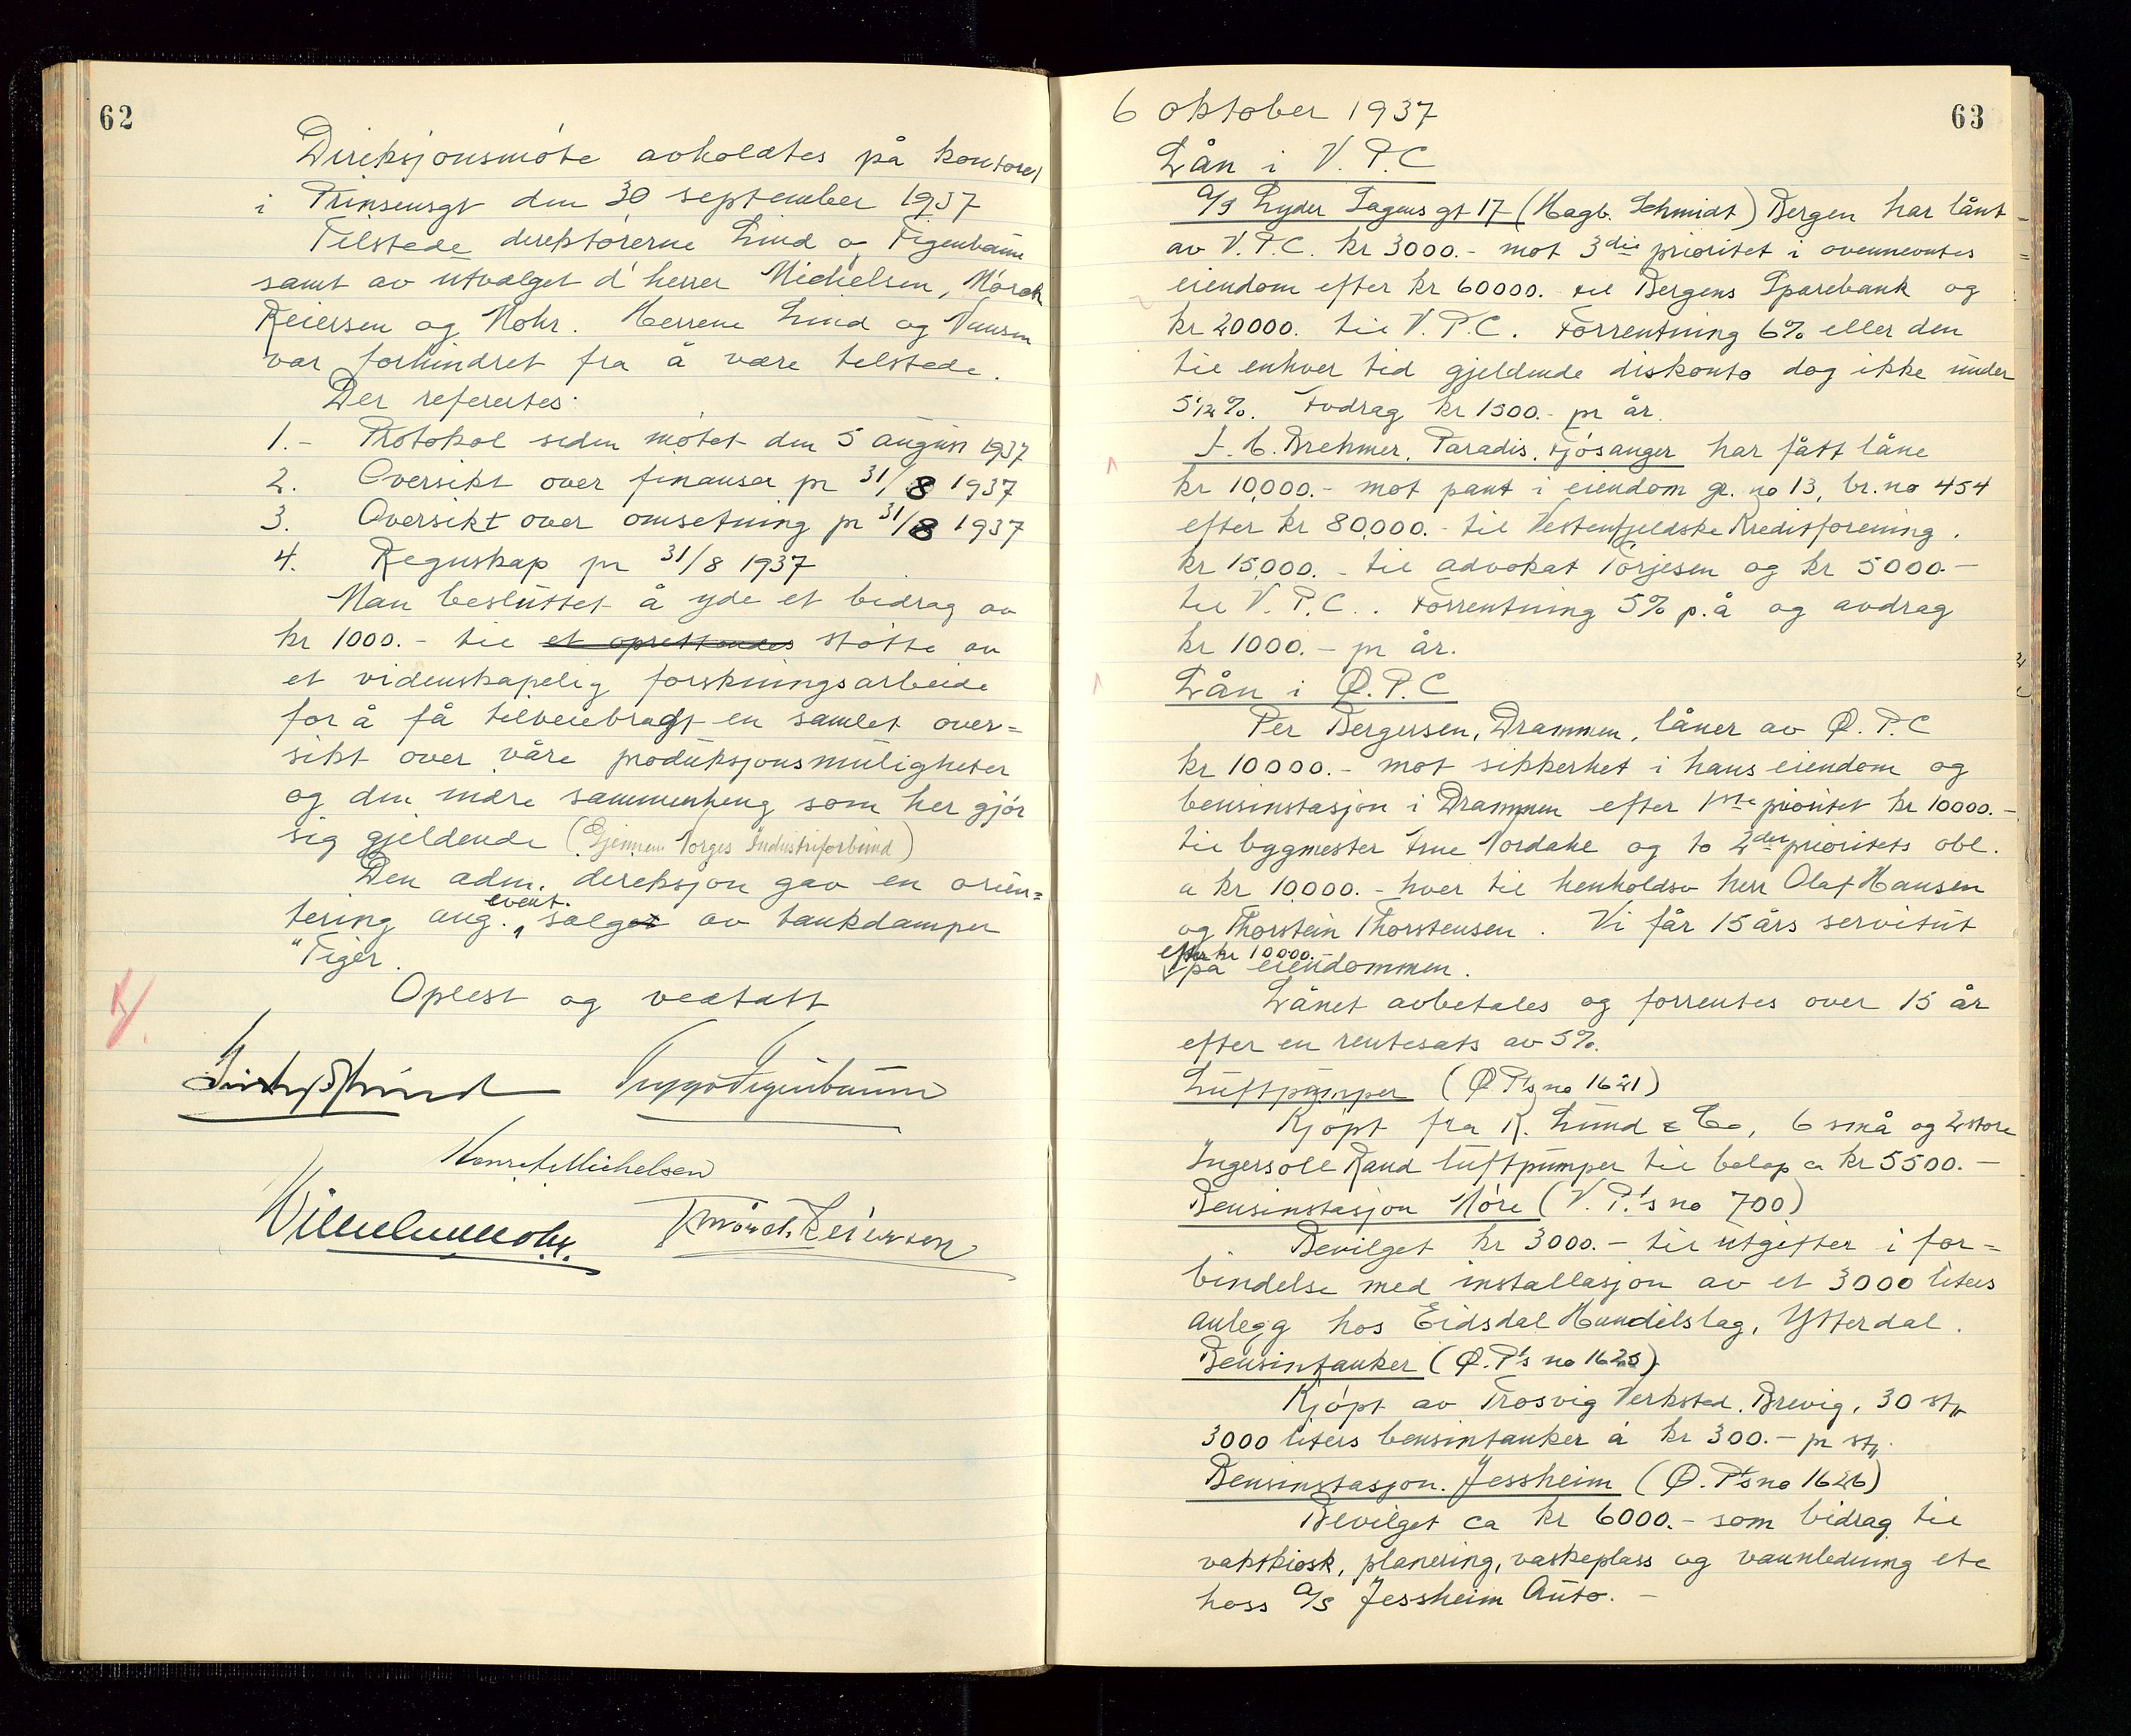 62
Direksjonsmöte avholdtes på kontoret
i Prinsensgt den 30 september 1937
Tilstede direktörerne Lind og Figenbaum
samt av utvalget d'herrer Michelsen, Mörch
Reiersen og Mohr. Herrene Lind og Nansen
var forhindret fra å være tilstede.
Der refertes:
1.- Protokol siden mötet den 5 august 1937
2. Oversikt over finanser pr 31/8 1937
3. Oversikt over omsetning pr 31/8 1937
4. Regnskap pr 31/8 1937
Man besluttet å yde et bidrag av
kr 1000.- til et oprettendes stötte av
et videnskapelig forskningsarbeide
for å få tilveiebragt en samlet over=
sikt over våre produksjonsmuligheter
og den indre sammenheng som her gjör
sig gjeldende (Gjennem Norges Industriforbund)
Den adm. direksjon gav en orien=
tering ang. event. salget av tankdamper
"Tiger.
Oplest og vedtatt
Wilhelm Mohr.
K Mörch Reiersen
6 oktober 1937
63
Lån i V.P.C
A/S Lyder Sagens gt 17 (Hagb. Schmidt) Bergen har lånt
av V.P.C. kr 3000.- mot 3die prioritet i ovennevntes
eiendom efter kr 60000.- til Bergens Sparebank og
kr 20000. til V.P.C. Forrentning 6% eller den
til enhver tid gjeldende diskonto dog ikke under
5 1/2%. Avdrag kr 1500.- pr år.
F. C. Brehmer, Paradis, Fjösanger har fått låne
kr 10,000.- mot pant i eiendom gr. no 13, br. no 454
efter kr 80,000.- til Vestenfjeldske Kreditforening.
kr 15,000.- til advokat Torjesen og kr 5000.-
til V.P.C.. Forrentning 5% p.å og avdrag
kr 1000.- pr år.
Lån i Ø.P.C
Per Bergersen, Drammen, låner av Ø.P.C
kr 10000.- mot sikkerhet i hans eiendom og
bensinstasjon i Drammen efter 1ste prioritet kr 10000.-
til bygmester Arne Nordahl og to 2den prioritets obl.
a kr 10,000.- hver til henholdsv herr Olaf Hansen
og Thorstein Thorstensen. Vi får 15 års servitut
efter kr 10000.
på eiendommen.
Lånet avbetales og forrentes over 15 år
efter en rentesats av 5%.
Luftpumper (Ø P's no 1621)
Kjöpt fra K. Lund & Co, 6 små og 2 store
Ingersoll Rand luftpumper til belöp ca kr 5500.-
Bensinstasjon Möre (V.P.'s no 700)
Bevilget kr 3000.- til utgifter i for=
bindelse med installasjon av et 3000 liters
anlegg hos Eidsdal Handelslag, Ytterdal.
Bensintanker (Ø.P's no 1625)
Kjöpt av Trosvig Verksted, Brevig, 30 st,,
3000 liters bensintanker à kr 300.- pr st,,.
Bensinstasjon. Jessheim (Ø.P's no 1626)
Bevilget ca kr 6000.- som bidrag til
vaktkiosk, planering, vaskeplass og vannledning etc
hoss A/S Jessheim Auto.-